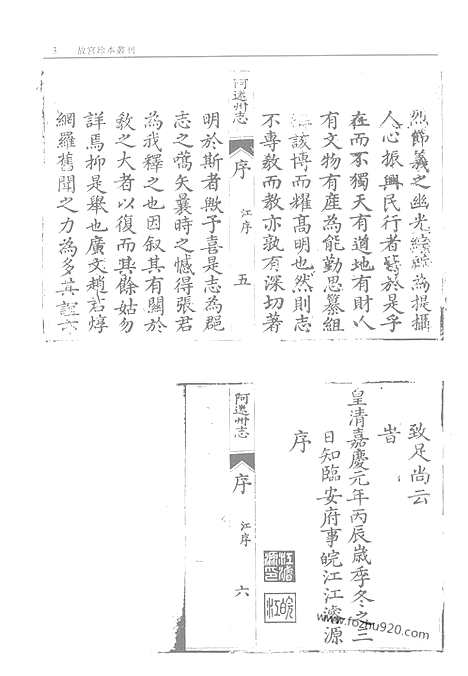 3 故宮珍本叢刊
烈節義之幽光 為提攝
人心振興民行者皆於是乎
在而不獨天有道地有財人
有文物有產為能勤思纂組
該博而耀高明也然則志
不專教而教亦孰有深切著
阿迷州志
序 江序 五
明於斯者歟予喜是志為郡
志之嚆矢曩時之憾得張君
為我釋之也因叙其有關於
教之大者以復而其餘姑勿
詳焉抑是舉也廣文趙君焞
網羅舊聞之力為多其誼六
致足尚云
旹
皇清嘉慶元年丙辰歲季冬之三
日知臨安府事皖江江濬源
序
阿迷州志
序 江序 六
江濬源印
皖江
www.fozhu920.com